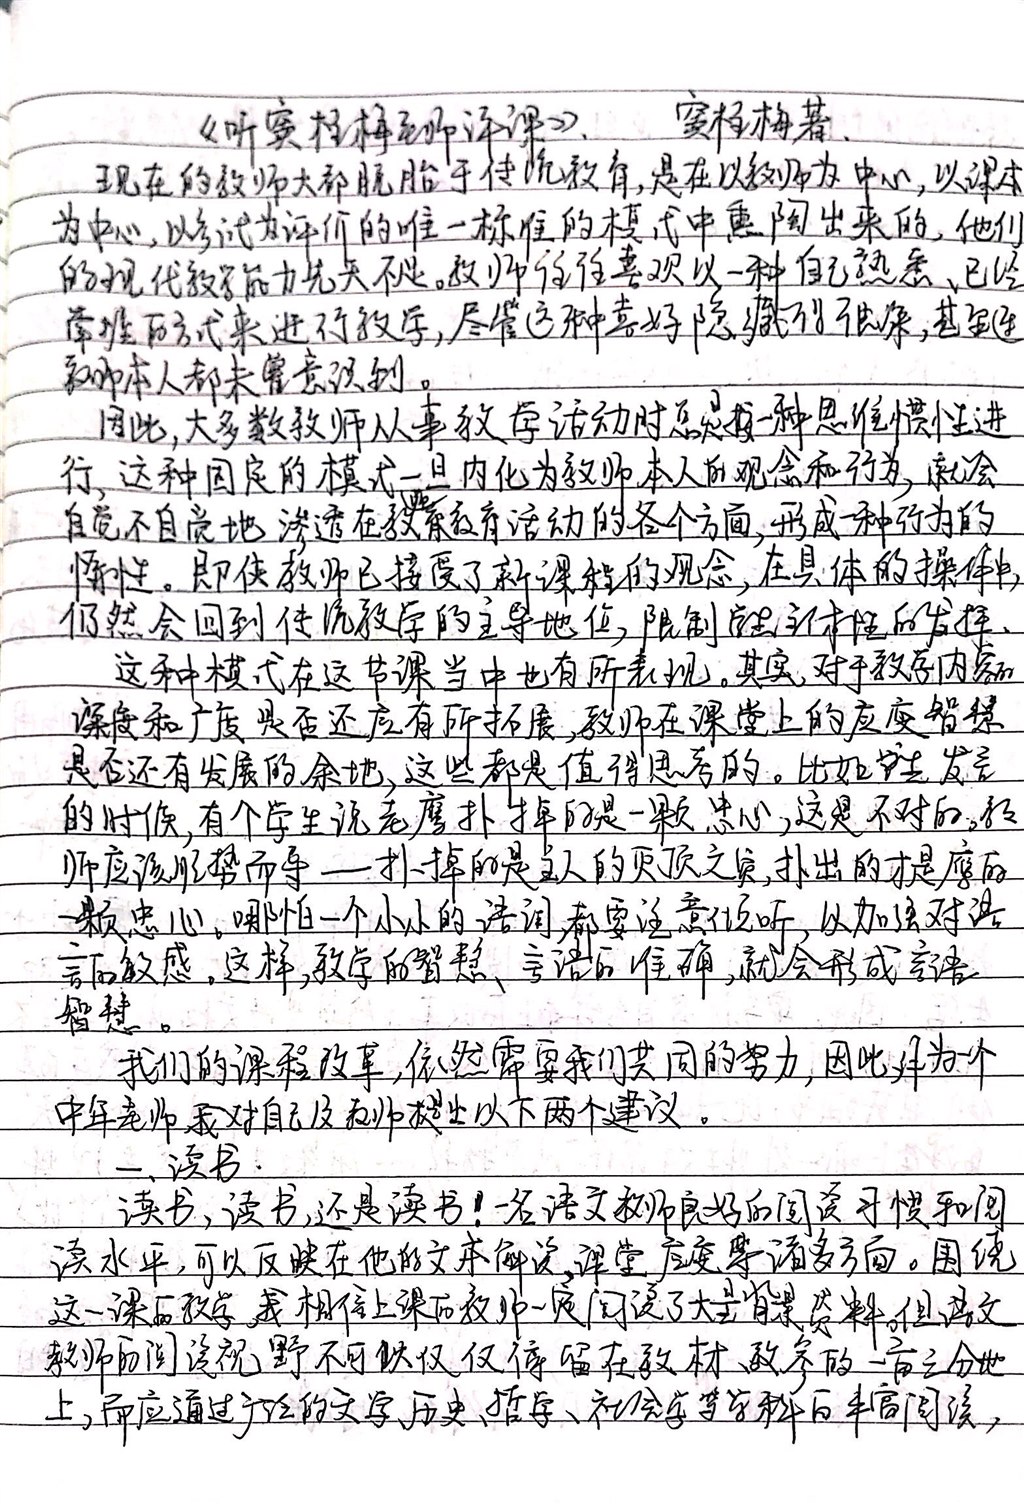 《听窦桂梅老师评课》. 窦桂梅著.
现在的教师大都脱胎于传统教育,是在以教师为中心,以课本
为中心,以考试为评价的唯一标准的模式中熏陶出来的,他们
的现代教学能力先天不足。教师往往喜欢以一种自己熟悉、已经
掌握的方式来进行教学,尽管这种喜好隐藏得很深,甚至连
教师本人都未曾意识到。
因此,大多数教师从事教学活动时总是按一种思维惯性进
行,这种固定的模式一旦内化为教师本人的观念和行为,就会
自觉不自觉地渗透在教育活动的各个方面,形成一种行为的
惰性。即使教师已接受了新课程的观念,在具体的操作中,
仍然会回到传统教学的主导地位,限制学生主体性的发挥.
这种模式在这节课当中也有所表现。其实,对于教学内容的
深度和广度是否还应有所拓展,教师在课堂上的应变智慧
是否还有发展的余地,这些都是值得思考的。比如学生发言
的时候,有个学生说老鹰扑掉的是一颗忠心,这是不对的。教
师应该顺势而导——扑掉的是主人的灭顶之灾,扑出的才是鹰的
一颗忠心。哪怕一个小小的语词,都要注意倾听,以加强对语
言的敏感。这样,教学的智慧、言语的准确,就会形成言语
智慧。
我们的课程改革,依然需要我们共同的努力,因此,作为一个
中年老师,我对自己及教师提出以下两个建议。
一、读书.
读书,读书,还是读书!一名语文教师良好的阅读习惯和阅
读水平,可以反映在他的文本解读,课堂应变等诸多方面。围绕
这一课的教学,我相信上课的教师一定阅读了大量背景资料,但语文
教师的阅读视野不可仅仅停留在教材、教参的一亩三分地
上,而应通过广泛的文学、历史、哲学、社会学等学科的丰富阅读,